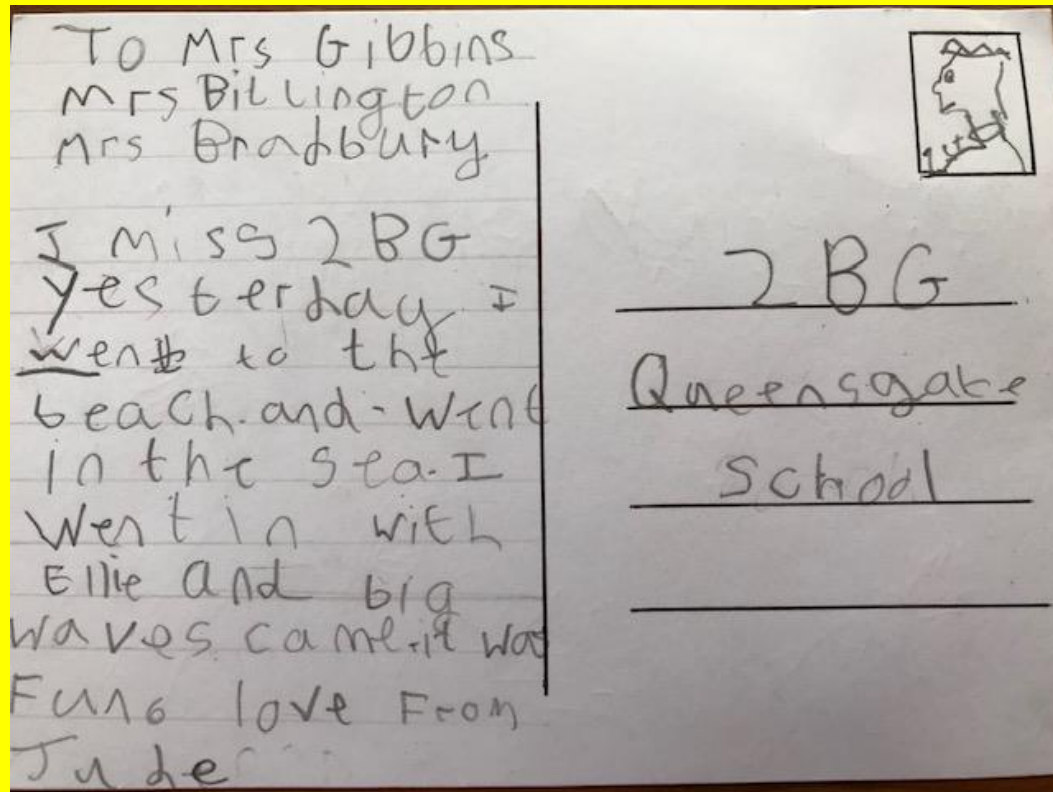 To Mrs Gibbins
Mrs Billington
Mrs Bradbury
I miss 2BG
Yesterday I
went to the
beach. and - went
in the sea. I
went in with
Ellie and big
waves came. it was
Fun. love From
Jude
1st
2BG
Queensgate
School